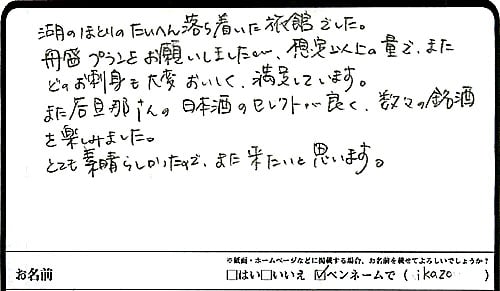 湖のほとりのたいへん落ち着いた旅館でした。
舟盛プランをお願いしましたが、想定以上の量で、また
どのお刺身も大変おいしく、満足しています。
また若旦那さんの日本酒のセレクトが良く、数々の銘酒
を楽しみました。
とても素晴らしかったので、また来たいと思います。
※紙面・ホームページなどに掲載する場合、お名前を載せてよろしいでしょうか?
お名前 □はい□いいえ ☑ペンネームで ( ikazo )